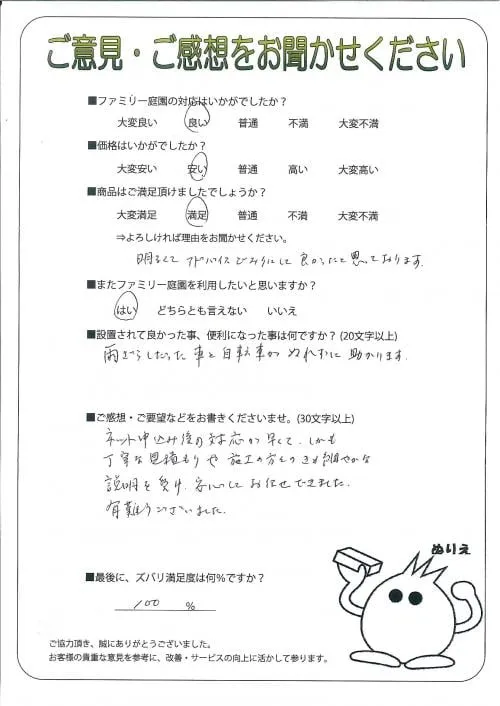 ご意見・ご感想をお聞かせください
■ファミリー庭園の対応はいかがでしたか？
大変良い 良い 普通 不満 大変不満
■価格はいかがでしたか？
大変安い 安い 普通 高い 大変高い
■商品はご満足頂けましたでしょうか？
大変満足 満足 普通 不満 大変不満
⇒よろしければ理由をお聞かせください。
明るくて アドバイスどおりにして良かったと思っております。
■またファミリー庭園を利用したいと思いますか？
はい どちらとも言えない いいえ
■設置されて良かった事、便利になった事は何ですか？(20文字以上)
雨ざらしだった車と自転車がぬれずに助かります。
■ご感想・ご要望などをお書きくださいませ。(30文字以上)
ネット申込み後の対応が早くて、しかも
丁寧な見積もりや施工の方のきめ細やかな
説明を受け、安心してお任せできました。
有難うございました。
■最後に、ズバリ満足度は何％ですか？
100 %
ぬりえ
ご協力頂き、誠にありがとうございました。
お客様の貴重な意見を参考に、改善・サービスの向上に活かして参ります。